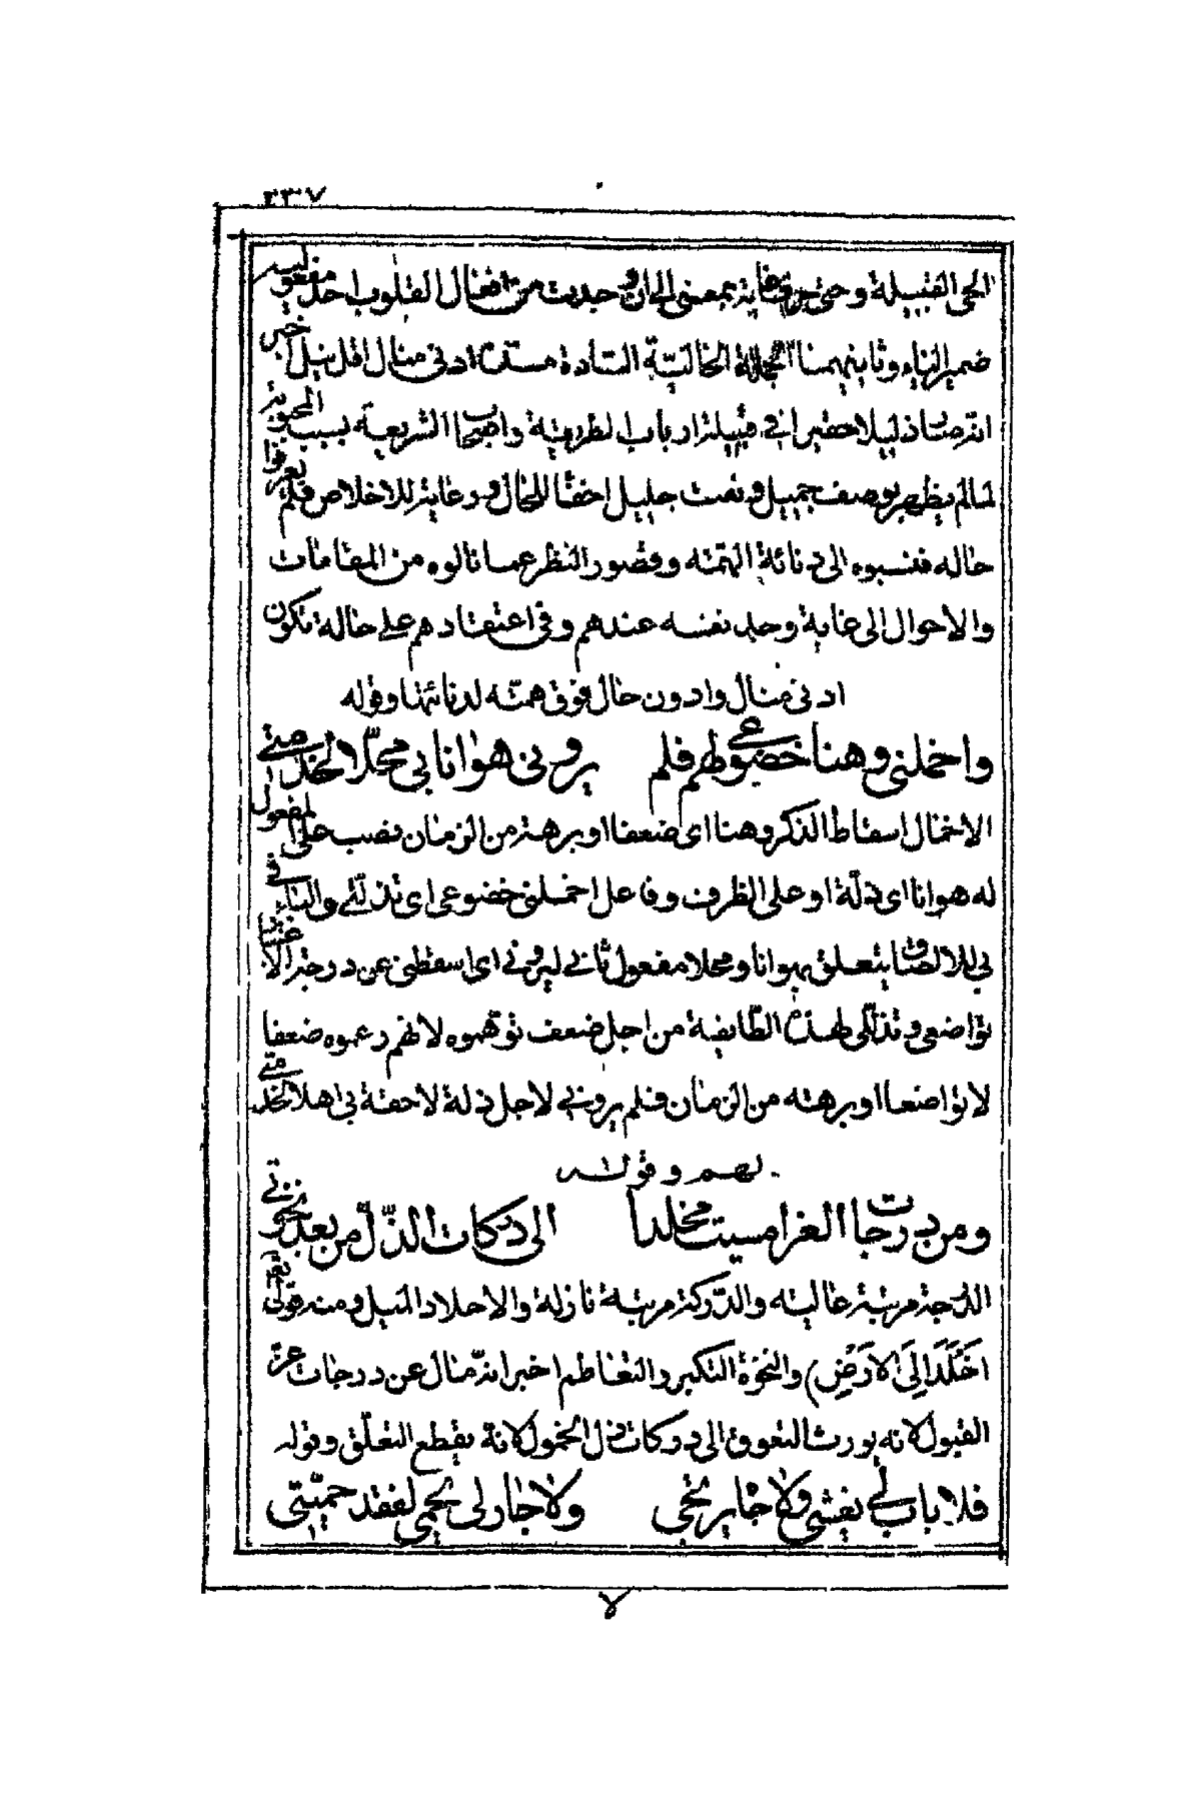 ٢٣٧
الحى القبيلة وحتى حرف غاية بمعنى الى ان وحديث من افعال القلوب احد مفعوليه
ضمير الياء وثانيهما الجملة الحالية السادة مسده ادنى منال اقل نيل اخبر
انه صار ذليلا حقيرا فى قبيلة ارباب الطريقة واصحاب الشريعة بسبب المحبوبة
لما لم يظهر بوصف جميل ونعت جليل اخفاء للحال ورعاية للاخلاص فلم يعرفوا
حاله فنسبوه الى دنائة الهمة وقصور النظر عما نالوه من المقامات
والاحوال الى غاية وجد نفسه عندهم وفى اعتقادهم على حالة تكون
ادنى منال وادون حال فوق همته لدنائتها وقوله
واخملنى وهنا خضوعى لهم فلم يرونى هوانا بى محلا لخدمتى
الاخمال اسقاط الذكر وهنا اى ضعفا او برهة من الزمان نصب على المفعول
له هوانا اى ذلة او على الظرف وفاعل اخملنى خضوعى اى تذللى والباء فى
بى للالصاق يتعلق بهوانا ومحلا مفعول ثانى ليرونى اى اسقطنى عن درجة الاعتبار
تواضعى وتذللى لهذه الطايفة من اجل ضعف توهموه لانهم زعموه ضعفا
لا تواضعا او برهة من الزمان فلم يرونى لاجل ذلة لاحقة بى اهلا لخدمتى
لهم وقوله
ومن درجات العز امسيت مخلدا الى دركات الذل من بعد نخوتى
الدرجة مرتبة عالية والدركة مرتبة نازلة والاخلاد الميل ومنه قوله تعالى
اخلد الى الارض) والنخوة التكبر والتعاظم اخبر انه مال عن درجات عز
القبول لانه يورث التعوق الى دركات ذل الخمول لانه يقطع التعلق وقوله
فلا باب لى يغشى ولا جاه يرتجى ولا جار لى يحمى لفقد حميتى